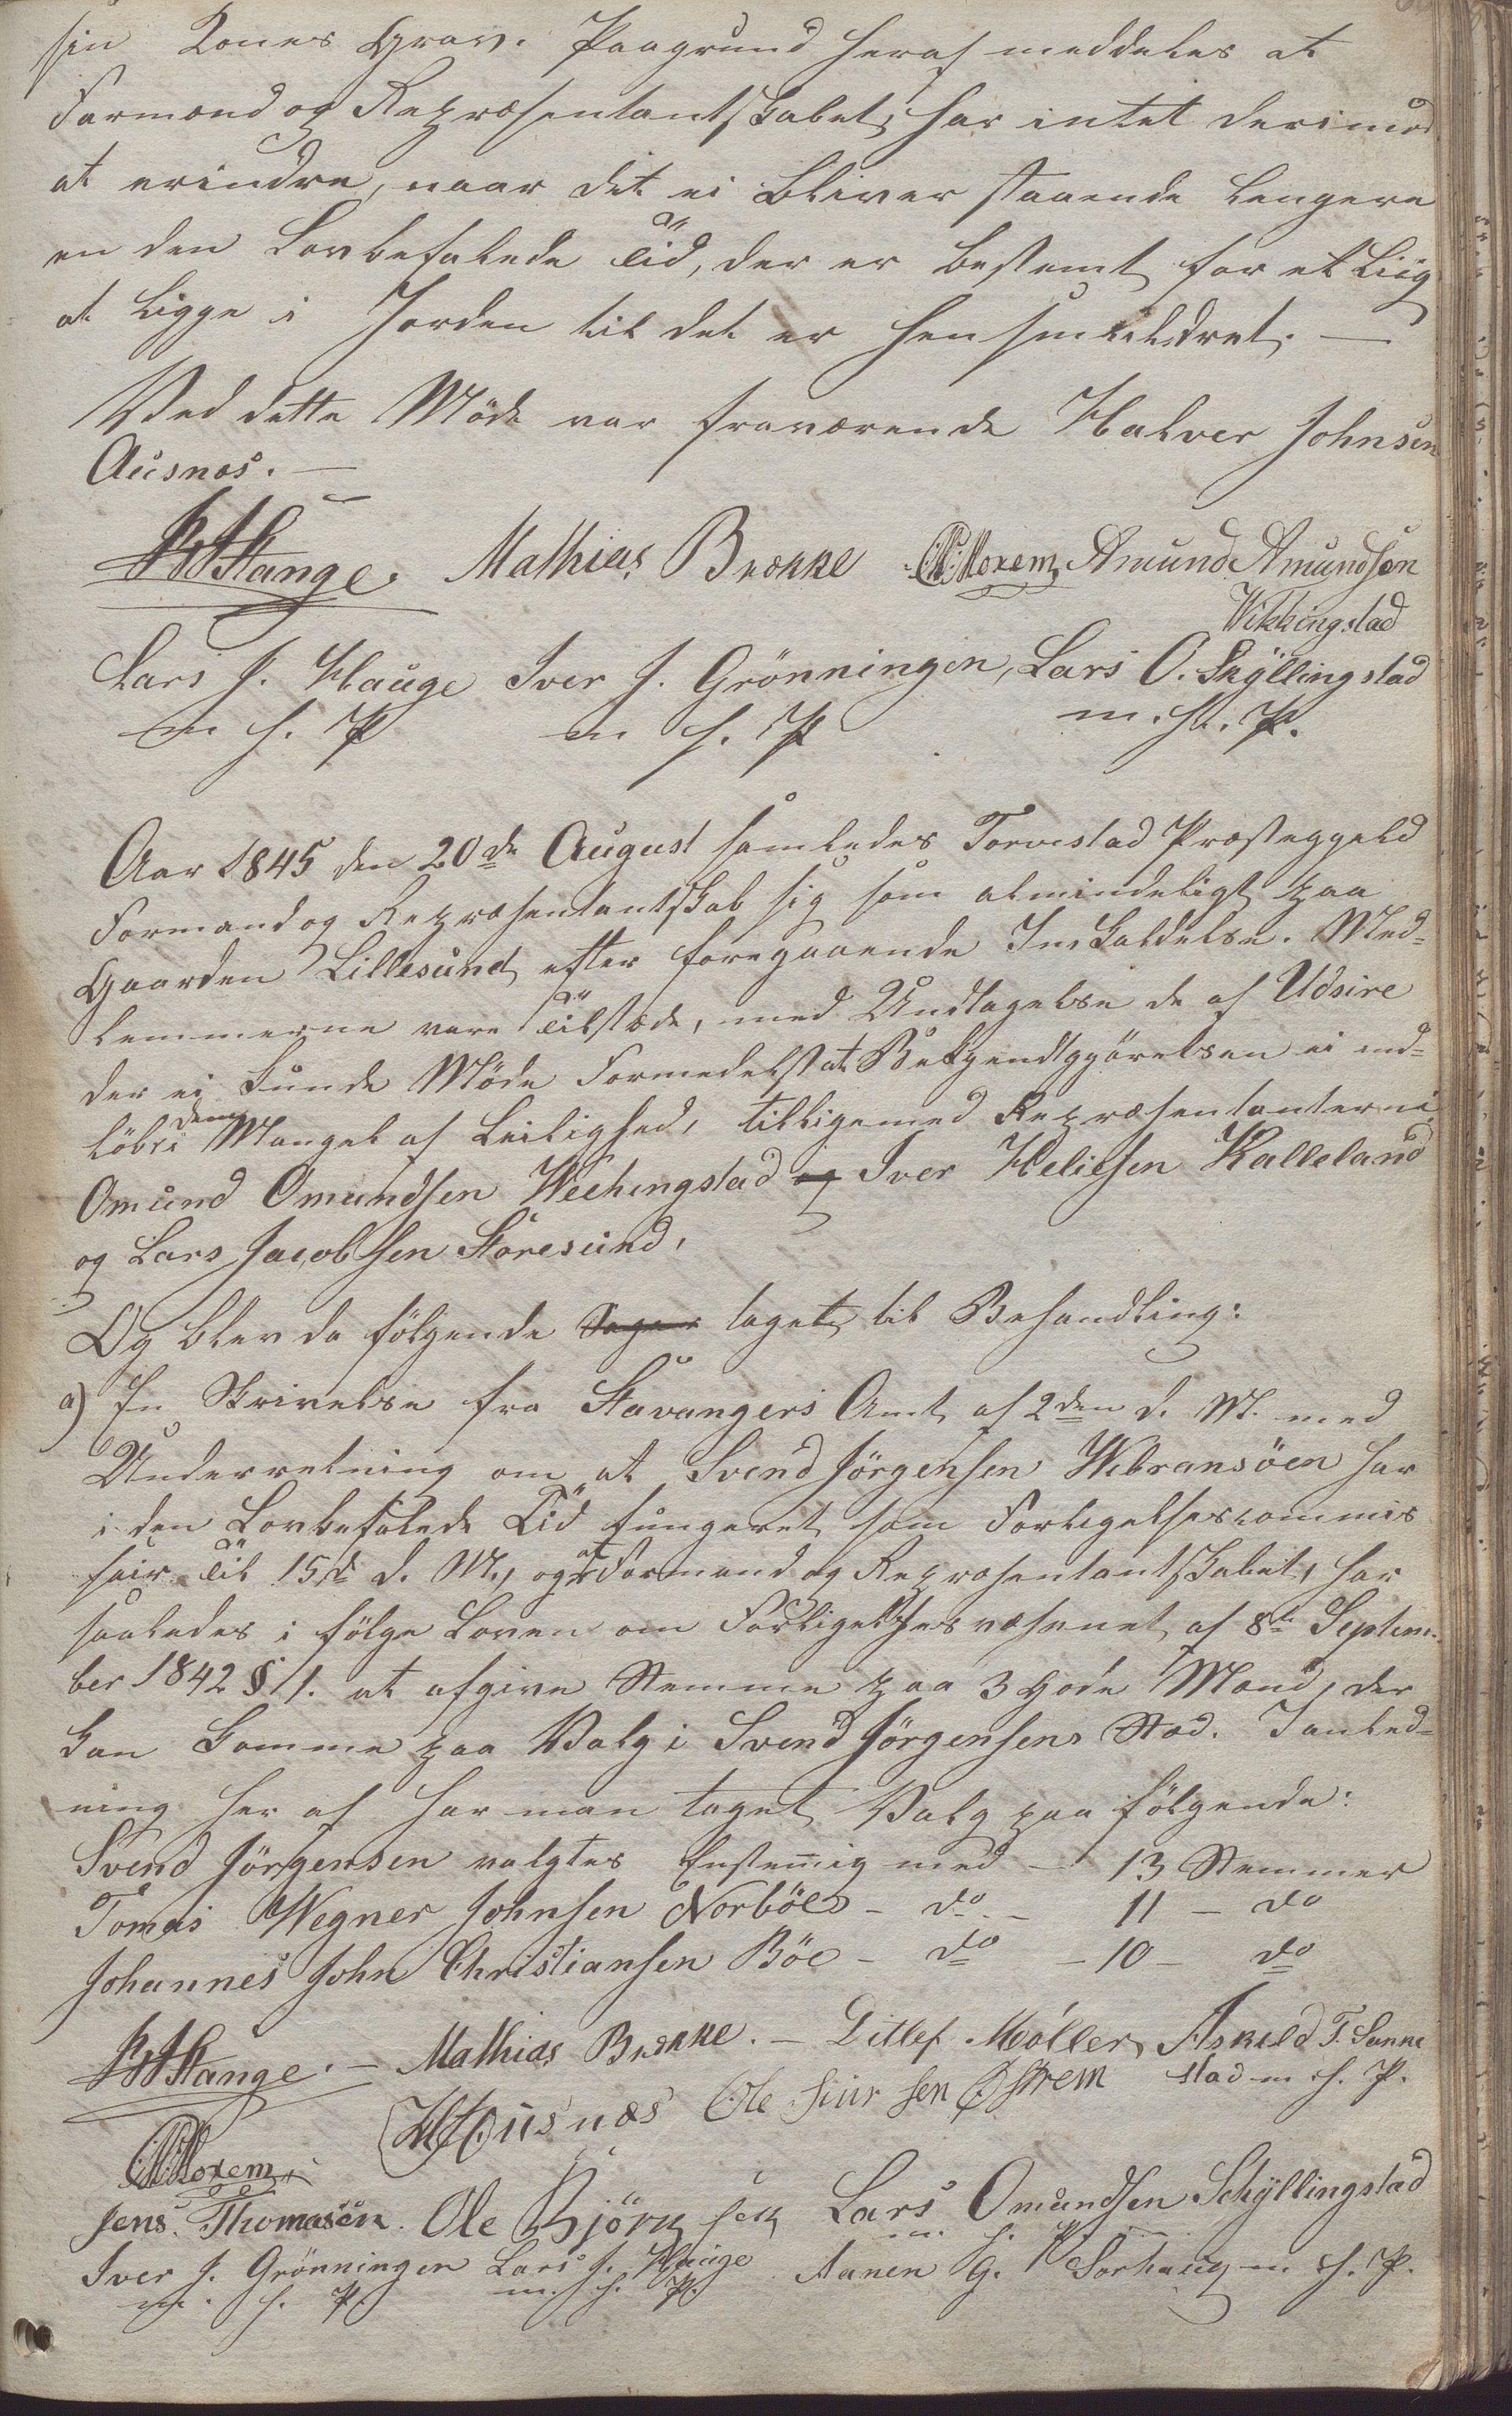 sin Kones Grav. Paagrund heraf meddeles at
Formand og Repræsentantskabet, har intet derimod
at erindre, naar det ei bliver staaende længere
en den Lovbefalede Tid, der er bestemt for et Liig
at ligge i Jorden til det er hensmuldret. —
Ved dette Møde var fraværende Halver Johnsen
Ausnæs. —
Stange. Mathias Brekke Amund Amundsen
Vikhingstad
Lars J. Hauge Iver J. Grönningen, Lars O. Skÿllingstad
m h. P m h. P m. h. P.
Aar 1845 den 20de August samledes Torvestad Præsteggeld
Formand og Repræsentantskab sig som almindeligt paa
Gaarden Lillesund efter foregaaende Indkaldelse. Med=
lemmerne vare Tilstæde, med Undtagelse de af Udsire
der ei kunde Møde formedelst at Bekjendtgjörelsen ei ind=
löb dem i Mangel af Leilighed, tilligemed Repræsentanterne
Omund Omundsen Wechingstad og Iver Heliesen Kalleland
og Lars Jacobsen Störesund,
Og blev da fölgende Sager taget til Behandling:
a) En Skrivelse fra Stavangers Amt af 2den d. M. med
Underretning om at Svend Jörgensen Wibransöen har
i den Lovbefalede Tid fungeret som Forligelsescommis
sair Til 15de d. M., og at Formand og Repræsentantskabet, har
saaledes i fölge Loven om Forligelsesvæsenet af 8de Septem=
ber 1842 § 1. at afgive Stemme paa 3 gode Mænd, der
kan komme paa Valg i Svend Jörgensens Sted. I anled=
ning her af har man taget Valg paa fölgende:
Svend Jörgensen valgtes Enstemig med — 13 Stemmer
Tomas Wegner Johnsen Norböe — do — 11 — do
Johannes John Christiansen Böe — do — 10 — do
Stange. — Mathias Brekke. — Ditlef Möller, Askild T. Sunne
stad m. h. P.
Housnæs Ole Siursen Østrem
Jens. Thomasen. Ole Björnsen Lars Omundsen Schÿllingstad
m. h. P.
Iver J. Grönningen Lars J. Hauge Aanen G. Sorhaug m. h. P.
m. h. P. m. h. P.